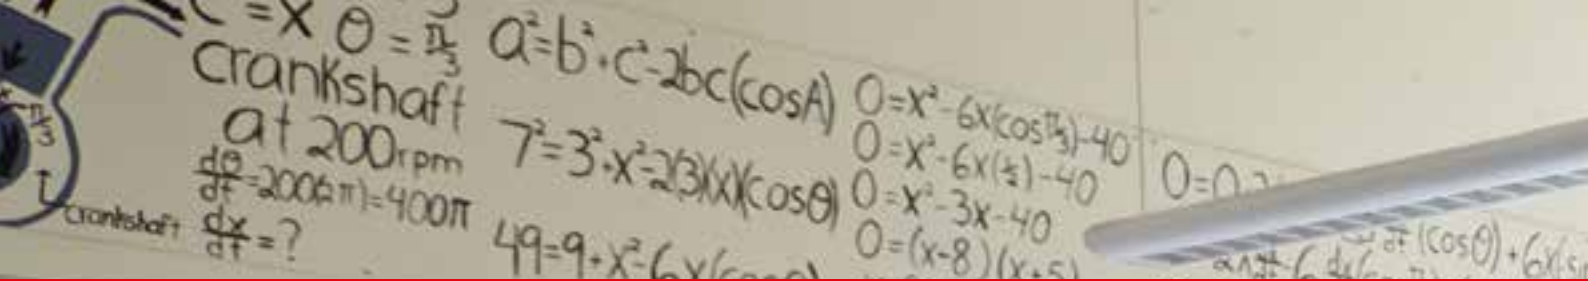 C = X θ = π/3
crankshaft
at 200rpm
dθ/dt = 200(2π) = 400π
dx/dt = ?
π/3
crankshaft
a²=b²+c²-2bc(cosA)
7²=3²+x²-2(3)(x)(cosθ)
49=9+x²-6x(cosθ)
0=x²-6x(cosπ/3)-40
0=x²-6x(½)-40
0=x²-3x-40
0=(x-8)(x+5)
0=0-2
dt (cosθ)+6x(sin